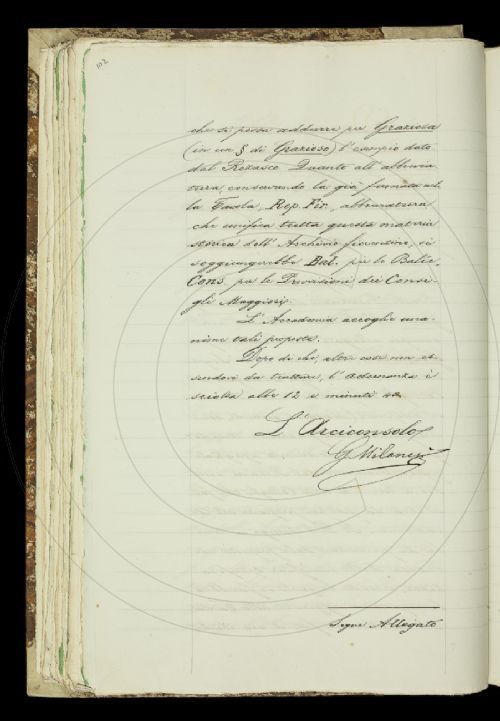 102
che si possa addurre per Graziosa
(in un § di Grazioso) l'esempio dato
dal Rezasco. Quanto all'abbrevia-
tura, conservando la già fermata nel-
la Tavola, Rep. Fir., abbreviatura
che unifica tutta questa materia
storica dell'Archivio fiorentino, si
soggiungerebbe Bal. per le Balìe,
Cons. per le Provvisioni dei Consi-
gli Maggiori.
L'Accademia accoglie una-
nime tali proposte.
Dopo di che, altre cose non es-
sendovi da trattare, l'adunanza è
sciolta alle 12 e minuti
L'Arciconsolo
G Milanesi
Segue Allegato